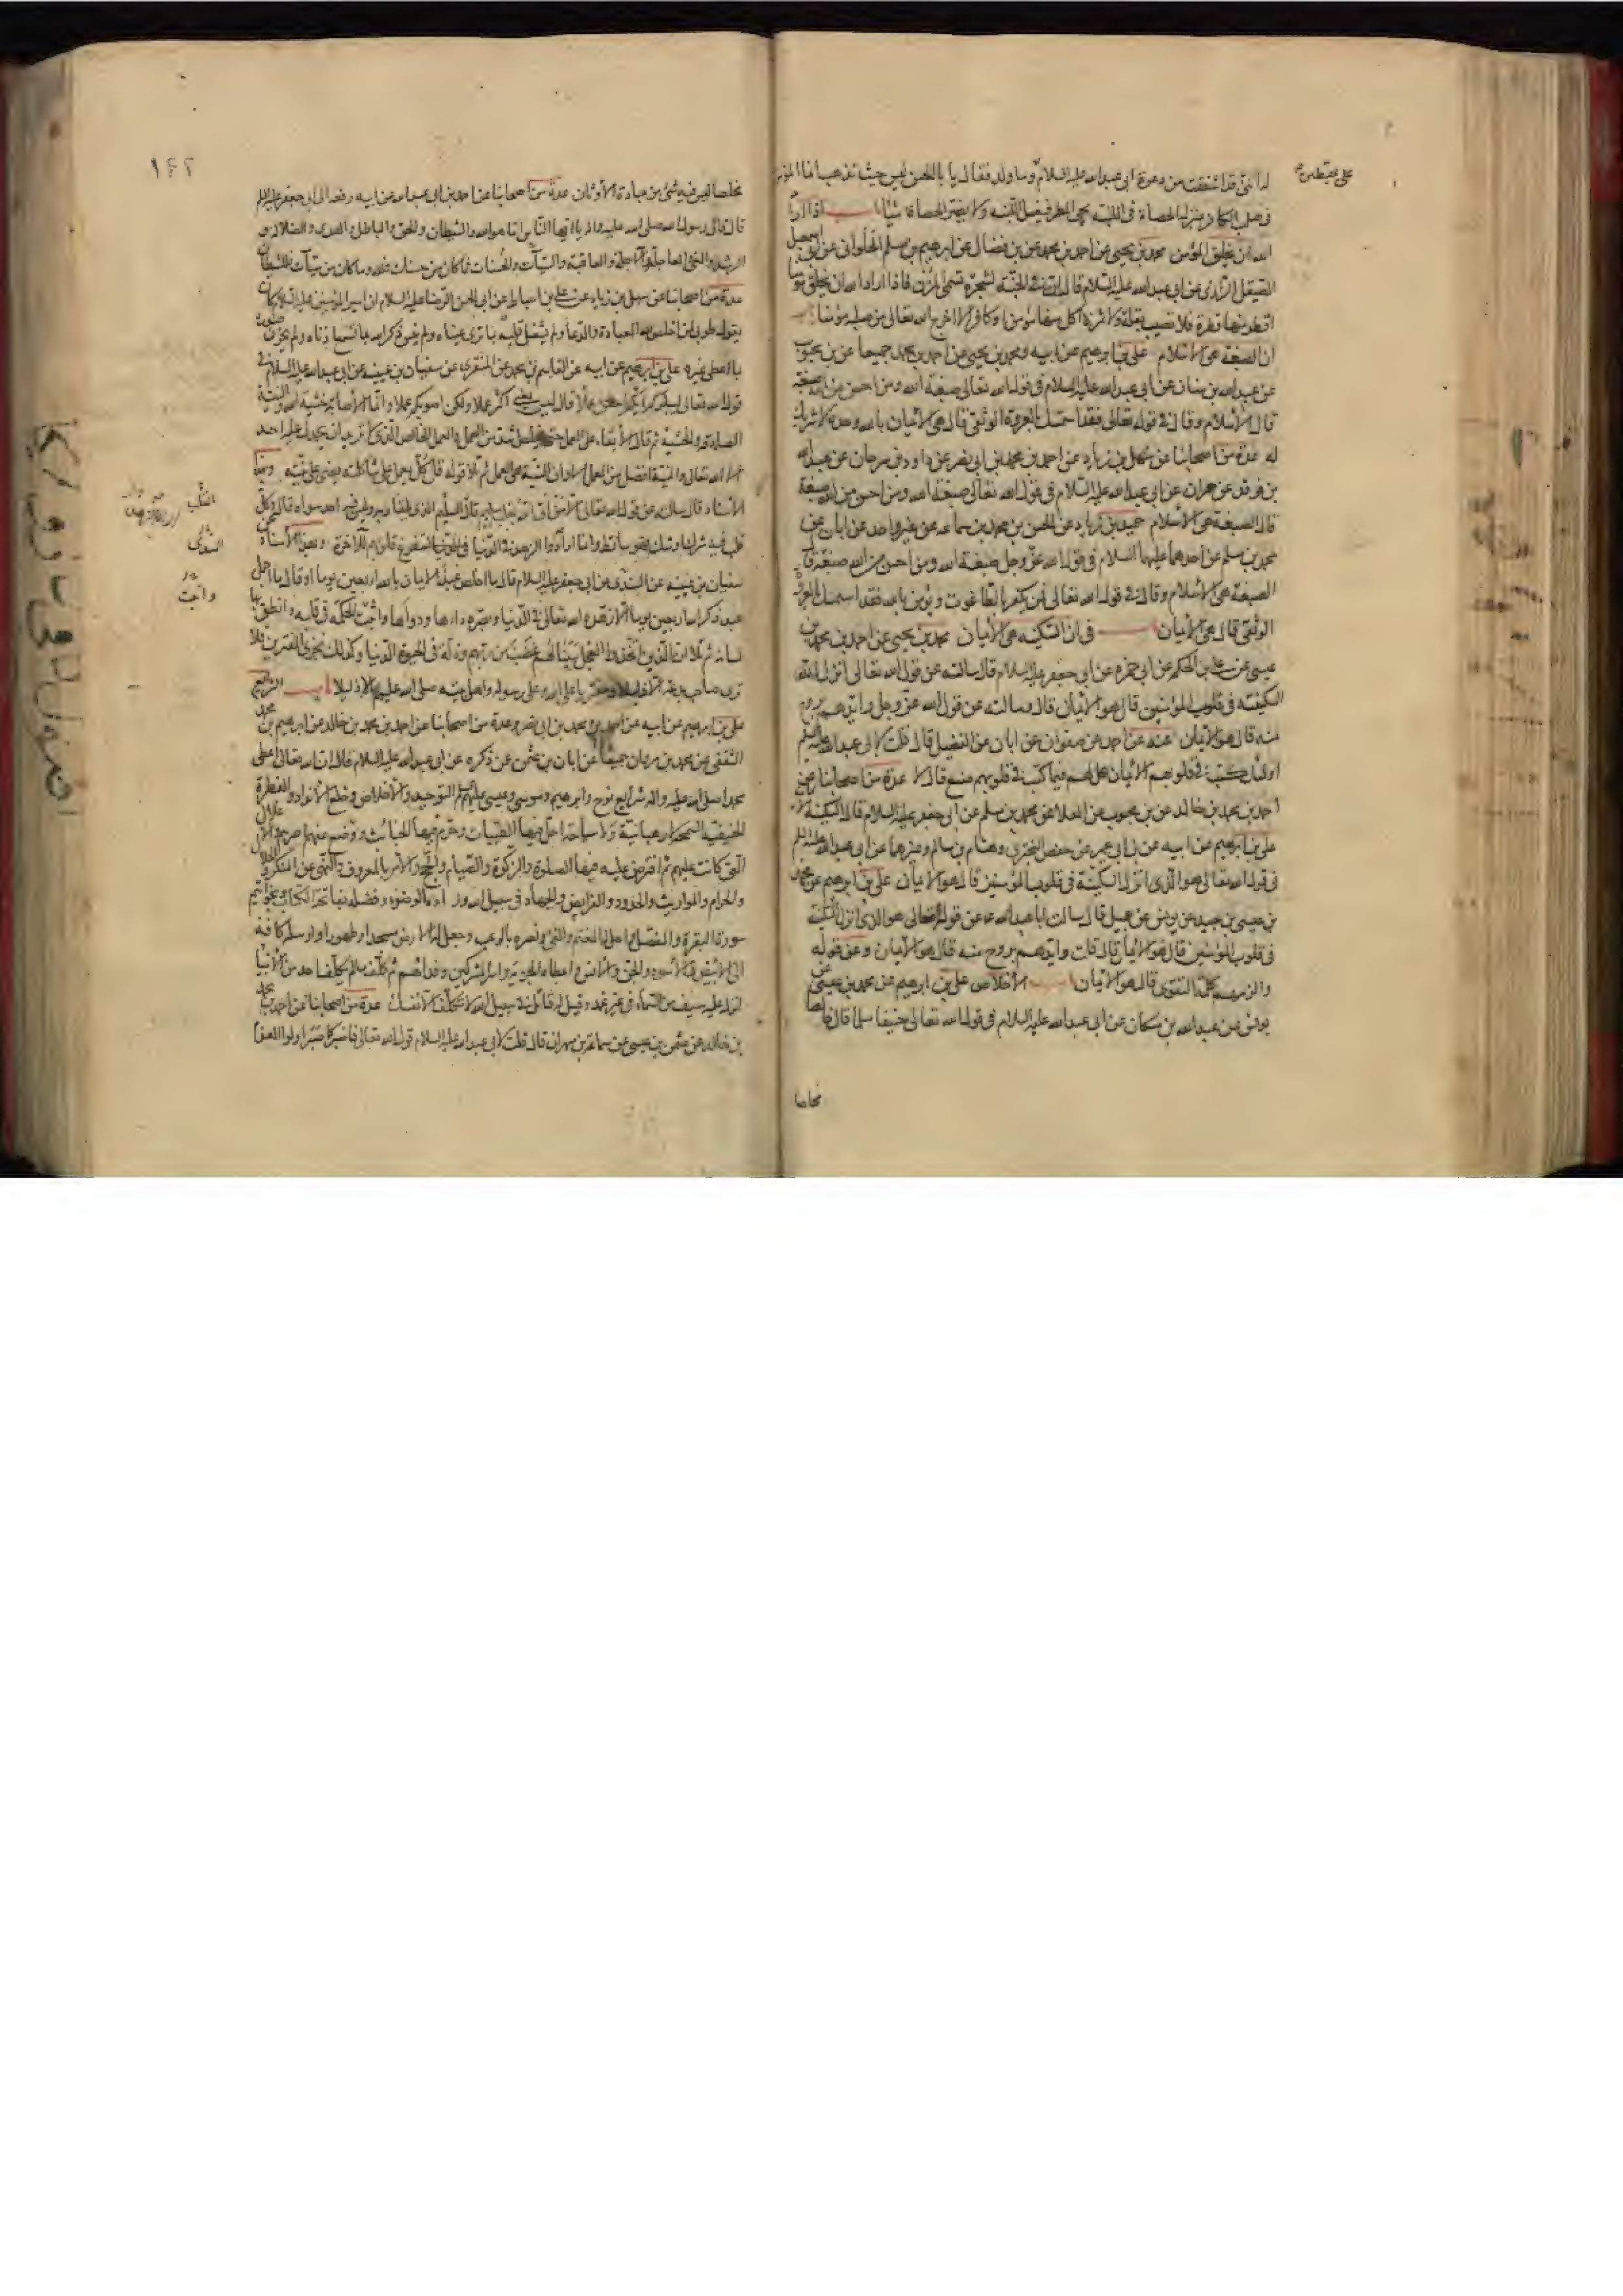 له انني قد اشفقت من دعوة ابي عبد الله عليه السلام وما ولد فقال يا با الحسن ليس حيث تذهب انما المؤمن
في صلب الكافر بمنزلة الحصاة في اللبنة يجئ المطر فيغسل اللبنة ولا يضر الحصاة شيئا باب اذا اراد
الله ان يخلق المؤمن محمد بن يحيى عن احمد بن محمد عن بن فضال عن ابرهيم بن مسلم الحلواني عن ابي اسمعيل
الصيقل الرازي عن ابي عبد الله عليه السلام قال ان في الجنة لشجرة تسمى المزن فاذا اراد الله ان يخلق مؤمنا
اقطر منها قطرة فلا تصيب بقلة ولا ثمرة اكل منها مؤمن او كافر الا اخرج الله تعالى من صلبه مؤمنا باب
ان الصبغة هي الاسلام علي بن ابرهيم عن ابيه ومحمد بن يحيى عن احمد بن محمد جميعا عن بن محبوب
عن عبد الله بن سنان عن ابي عبد الله عليه السلام في قول الله تعالى صبغة الله ومن احسن من الله صبغة
قال الاسلام وقال في قوله تعالى فقد استمسك بالعروة الوثقى قال هي الايمان بالله وحده لا شريك
له عدة من اصحابنا عن سهل بن زياد عن احمد بن محمد بن ابي نصر عن داود بن سرحان عن عبد الله
بن فرقد عن حمران عن ابي عبد الله عليه السلام في قول الله تعالى صبغة الله ومن احسن من الله صبغة
قال الصبغة هي الاسلام حميد بن زياد عن الحسن بن محمد بن سماعه عن غير واحد عن ابان عن
محمد بن مسلم عن احدهما عليهما السلام في قول الله عز وجل صبغة الله ومن احسن من الله صبغة قال
الصبغة هي الاسلام وقال في قوله الله تعالى فمن يكفر بالطاغوت ويؤمن بالله فقد استمسك بالعروة
الوثقى قال هي الايمان باب في ان السكينه هي الايمان محمد بن يحيى عن احمد بن محمد بن
عيسى عن علي بن الحكم عن ابي حمزه عن ابي جعفر عليه السلام قال سالته عن قول الله تعالى انزل
السكينه في قلوب المؤمنين قال هو الايمان قال وسالته عن قول الله عز وجل وايدهم بروح
منه قال هو الايمان عنه عن احمد عن صفوان عن ابان عن الفضيل قال قلت لابي عبد الله عليه السلم
اولئك كتب في قلوبهم الايمان هل لهم فيما كتب في قلوبهم صنع قال لا عدة من اصحابنا عن
احمد بن محمد بن خالد عن بن محبوب عن العلا عن محمد بن مسلم عن ابي جعفر عليه السلام قال السكينة الايمان
علي بن ابرهيم عن ابيه عن بن ابي عمير عن حفص البختري وهشام بن سالم وغيرهما عن ابي عبد الله عليه السلم
في قول الله تعالى هو الذي انزل السكينة في قلوب المؤمنين قال هو الايمان علي بن ابرهيم عن محمد
بن عيسى بن عبيد عن يونس عن جميل قال سالت ابا عبد الله ع عن قوله تعالى هو الذي انزل السكينة
في قلوب المؤمنين قال هو الايمان قال قلت وايدهم بروح منه قال هو الايمان وعن قوله
والزمهم كلمة التقوى قال هو الايمان باب الاخلاص علي بن ابرهيم عن محمد بن عيسى عن
يونس عن عبد الله بن مسكان عن ابي عبد الله عليه السلام في قول الله تعالى حنيفا مسلما قال خالصا
علي يقطين
مخلصا
١٤٢
مخلصا ليس فيه شئ من عبادة الاوثان عدة من اصحابنا عن احمد بن ابي عبد الله عن ابيه رفعه الى ابي جعفر عليه السلم
قال قال رسول الله صلى الله عليه واله يا ايها الناس انما هو الله والشيطان والحق والباطل والهدى والضلالة و
الرشد والغي والعاجلة والاجلة والعاقبة والسيآت والحسنات فما كان من حسنات فلله وما كان من سيآت فللشيطان
عدة من اصحابنا عن سهل بن زياد عن علي بن اسباط عن ابي الحسن الرضا عليه السلام ان امير المؤمنين عليه السلام كان
يقول طوبى لمن اخلص لله العبادة والدعا ولم يشغل قلبه بما ترى عيناه ولم ينس ذكر الله بما تسمع اذناه ولم يحزن صدره
بما اعطى غيره علي بن ابرهيم عن ابيه عن القاسم بن محمد عن المنقري عن سفيان بن عيينه عن ابي عبد الله عليه السلام في
قول الله تعالى ليبلوكم ايكم احسن عملا قال ليس يعني اكثر عملا ولكن اصوبكم عملا وانما الاصابة خشية الله والنية
الصادقة والخشية ثم قال الابقاء على العمل حتى يخلص اشد من العمل والعمل الخالص الذي لا تريد ان يحمدك عليه احد
الا الله تعالى والنية افضل من العمل الا وان النية هي العمل ثم تلا قوله قل كل يعمل على شاكلته يعني على نيته وبهذا
الاسناد قال سالته عن قول الله تعالى الا من اتى الله بقلب سليم قال السليم الذي يلقى ربه وليس فيه احد سواه قال وكل
قلب فيه شرك او شك فهو ساقط وانما ارادوا الزهد في الدنيا لتفرغ قلوبهم للاخرة وبهذا الاسناد عن
سفيان بن عيينه عن السدي عن ابي جعفر عليه السلام قال ما اخلص عبد الايمان بالله اربعين يوما او قال ما اجمل
عبد ذكر الله اربعين يوما الا زهده الله تعالى في الدنيا وبصره داءها ودواءها واثبت الحكمة في قلبه وانطق بها
لسانه ثم تلا ان الذين اتخذوا العجل سينالهم غضب من ربهم وذلة في الحيوة الدنيا وكذلك نجزي المفترين فلا
ترى صاحب بدعة الا ذليلا ومفتريا على الله وعلى رسوله واهل بيته صلى الله عليهم الا ذليلا باب الشرايع
علي بن ابرهيم عن ابيه عن احمد بن محمد بن ابي نصر وعدة من اصحابنا عن احمد بن محمد بن خالد عن ابرهيم بن محمد
الثقفي عن محمد بن مروان جميعا عن ابان بن عثمن عن ذكره عن ابي عبد الله عليه السلام قال ان الله تعالى اعطى
محمدا صلى الله عليه واله شرايع نوح وابرهيم وموسى وعيسى عليهم السلم التوحيد والاخلاص وخلع الانداد والفطرة
الحنيفيه السمحة لا رهبانية ولا سياحة احل فيها الطيبات وحرم فيها الخبائث ووضع عنهم اصرهم والاغلال
التي كانت عليهم ثم افترض عليه فيها الصلوة والزكوة والصيام والحج والامر بالمعروف والنهي عن المنكر والحلال
والحرام والمواريث والحدود والفرايض والجهاد في سبيل الله وزاده الوضوء وفضله بفاتحة الكتاب وبخواتيم
سورة البقرة والمفصل واحل له المغنم والفئ ونصره بالرعب وجعل له الارض مسجدا وطهورا وارسله كافة
الى الابيض والاسود والجن والانس واعطاه الجزية واسر المشركين وفداهم ثم كلف ما لم يكلف احد من الانبيا
انزل عليه سيف من السماء في غير غمد وقيل له قاتل في سبيل الله لا تكلف الا نفسك عدة من اصحابنا عن احمد بن محمد
بن خالد عن عثمن بن عيسى عن سماعة بن مهران قال قلت لابي عبد الله عليه السلام قول الله تعالى فاصبر كما صبر اولوا العزم
القلب
السدى
واثبت